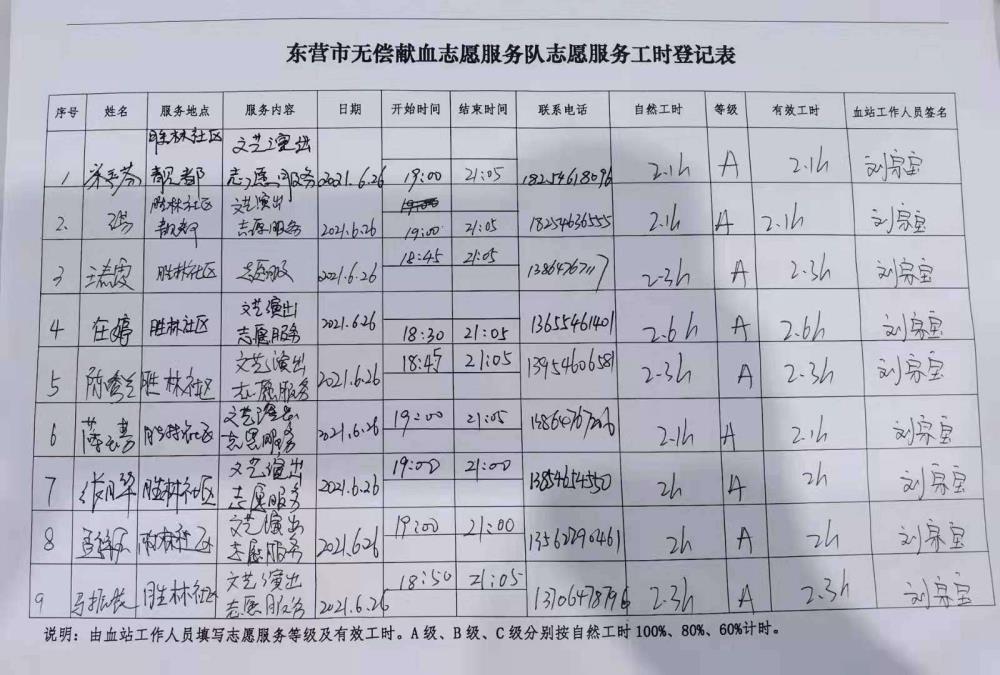 东营市无偿献血志愿服务队志愿服务工时登记表
序号 姓名 服务地点 服务内容 日期 开始时间 结束时间 联系电话 自然工时 等级 有效工时 血站工作人员签名
胜林社区 文艺演出
1 志愿服务 2021.6.26 19:00 21:05 18254618096 2.1h A 2.1h 刘宗宝
胜林社区 文艺演出
2 志愿服务 2021.6.26 19:00 21:05 18254636555 2.1h A 2.1h 刘宗宝
18:45 21:05
3 胜林社区 志愿服 2021.6.26 2.3h A 2.3h 刘宗宝
文艺演出
4 胜林社区 志愿服务 2021.6.26 18:30 21:05 13655461401 2.6h A 2.6h 刘宗宝
文艺演出 18:45 21:05
5 胜林社区 志愿服务 2021.6.26 13954606581 2.3h A 2.3h 刘宗宝
文艺演出 19:00 21:05
6 志愿服务 2021.6.26 2.1h A 2.1h 刘宗宝
文艺演出 19:00 21:00
7 胜林社区 志愿服务 2021.6.26 13854614550 2h A 2h 刘宗宝
文艺演出 19:00 21:00
8 志愿服务 2021.6.26 13562790461 2h A 2h 刘宗宝
文艺演出 18:50 21:05
9 胜林社区 志愿服务 2021.6.26 13706478796 2.3h A 2.3h 刘宗宝
说明：由血站工作人员填写志愿服务等级及有效工时。A级、B级、C级分别按自然工时100%、80%、60%计时。